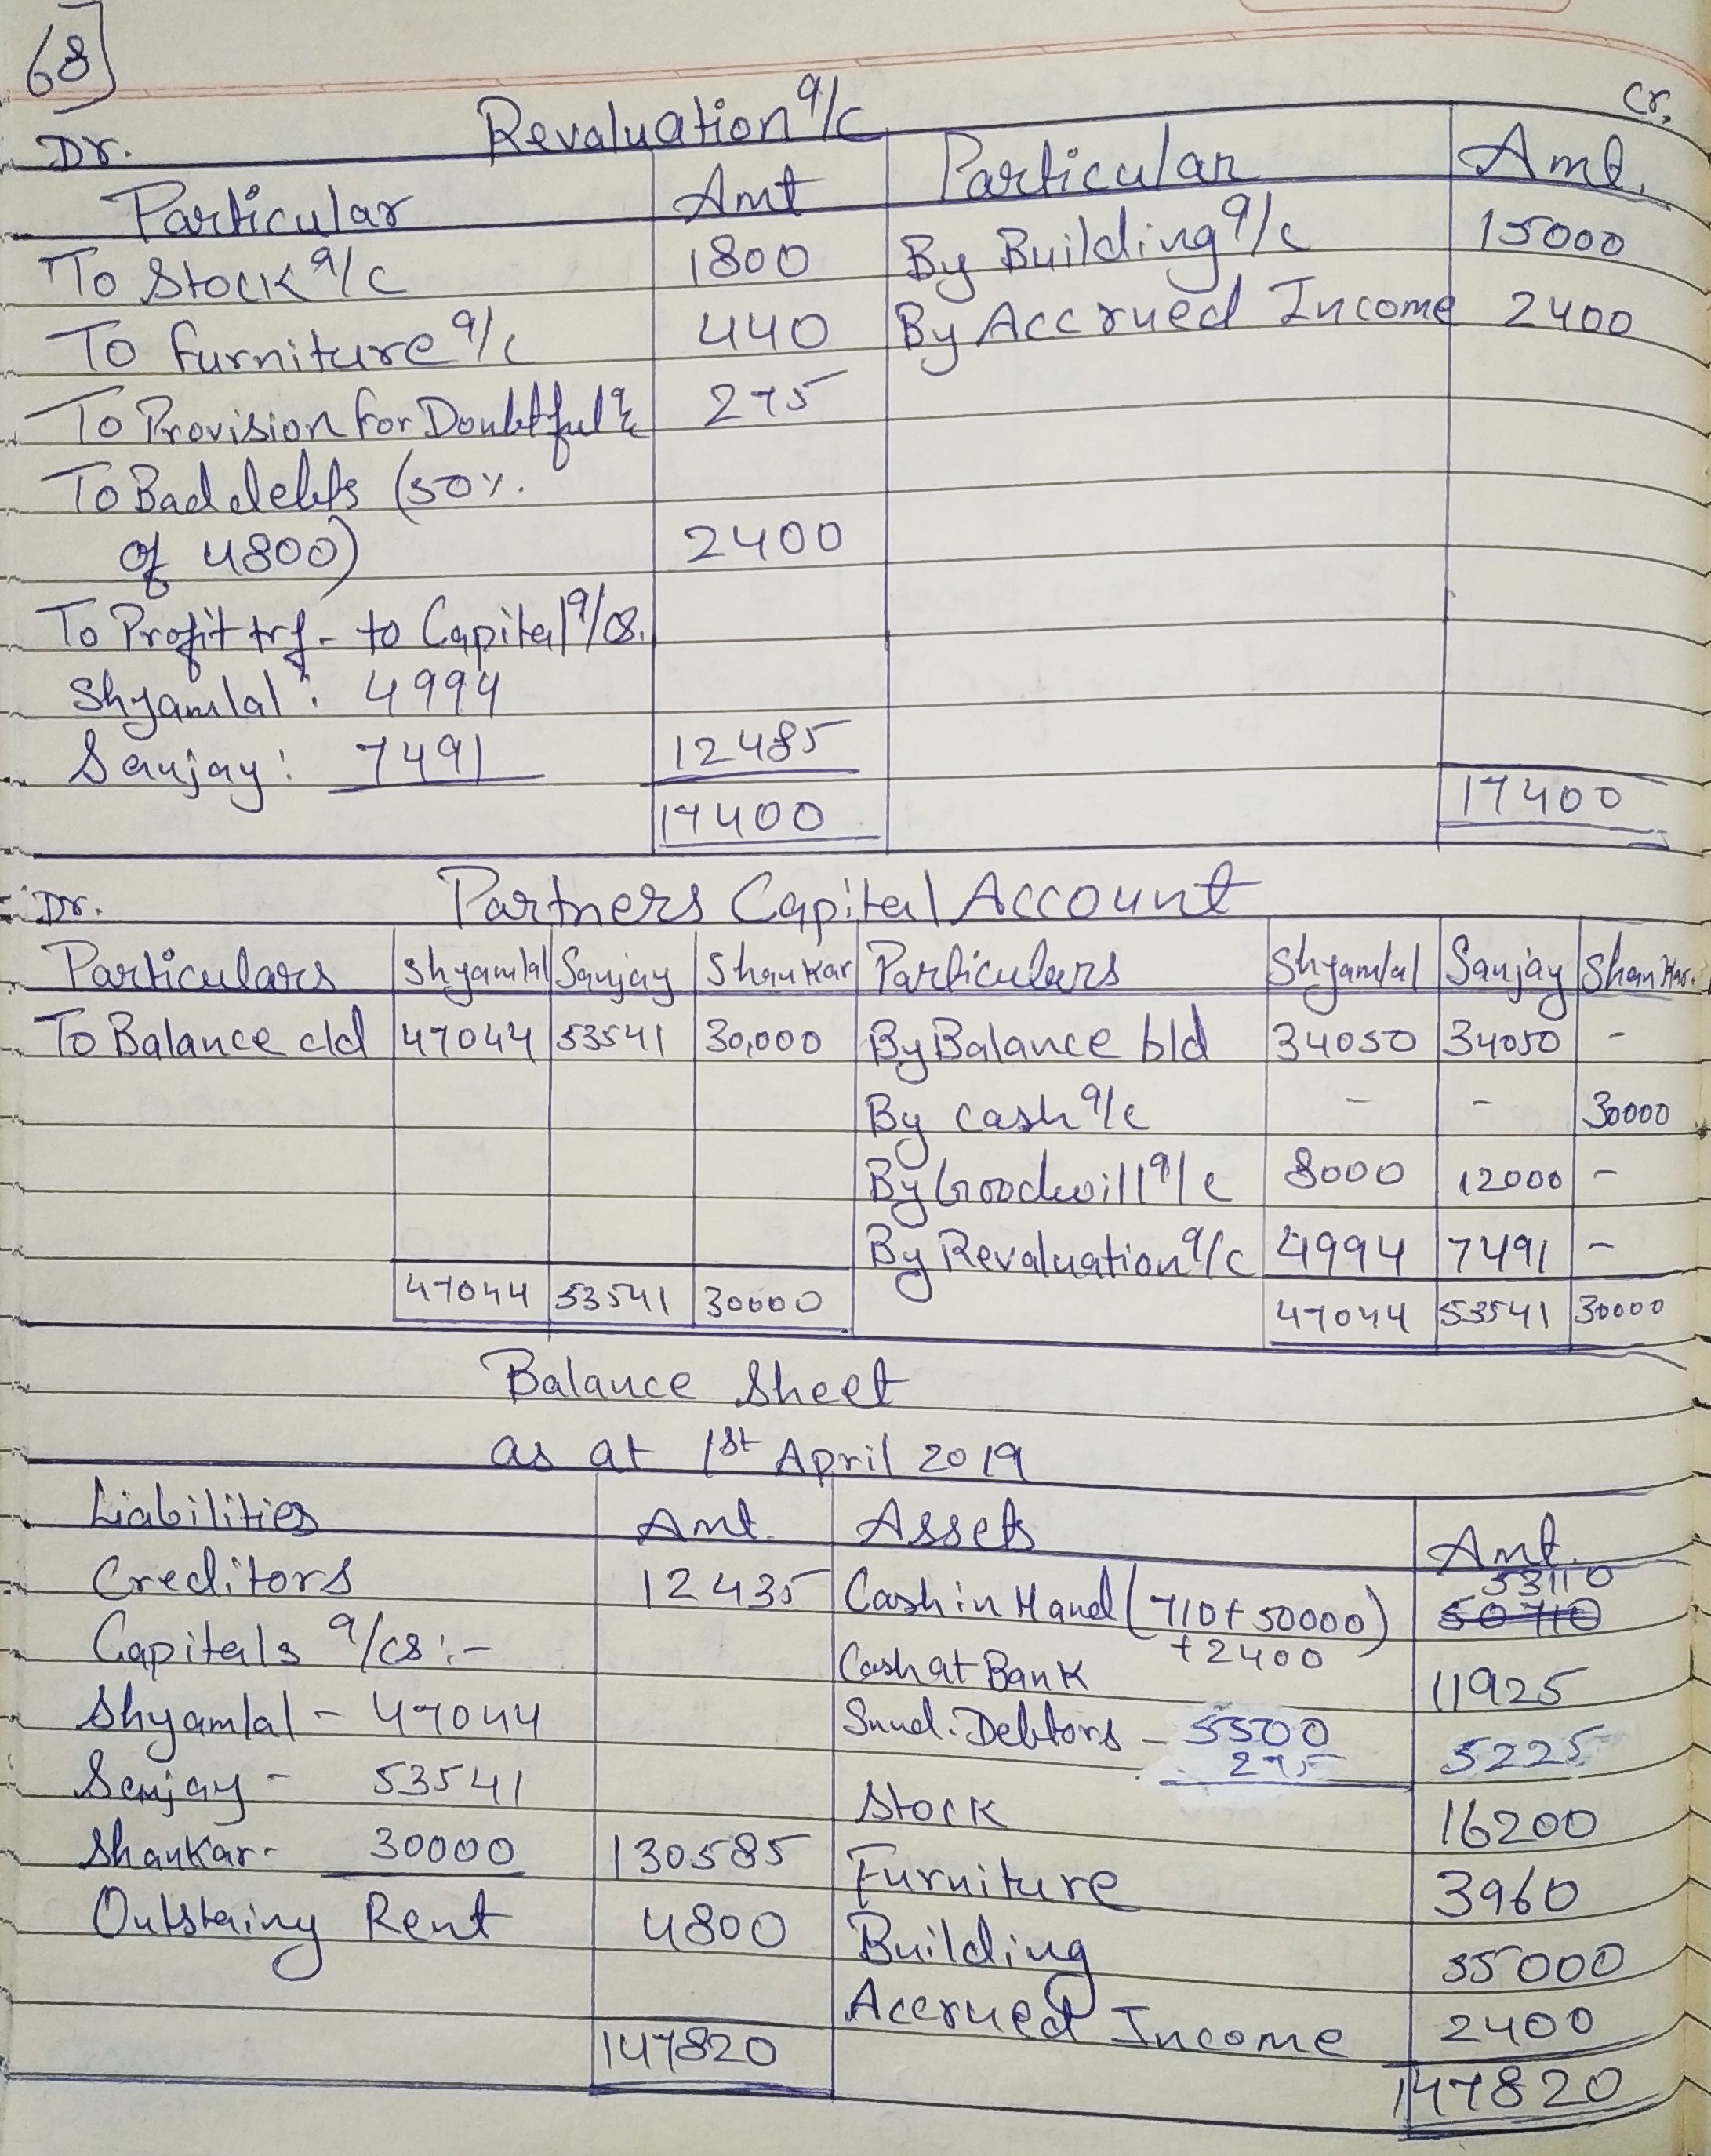 68]
Revaluation a/c
Dr. Cr.
Particular Amt Particular Amt.
To Stock a/c 1800 By Building a/c 15000
To furniture a/c 440 By Accrued Income 2400
To Provision for Doubtful a/c 275
To Bad debts (50%
of 4800) 2400
To Profit trf. to Capital a/cs.
Shyamlal: 4994
Sanjay: 7491 12485
17400 17400
Dr. Partners Capital Account
Particulars Shyamlal Sanjay Shankar Particulars Shyamlal Sanjay Shankar.
To Balance c/d 47044 53541 30,000 By Balance b/d 34050 34050 -
By cash a/c - - 30000
By Goodwill a/c 8000 12000 -
By Revaluation a/c 4994 7491 -
47044 53541 30000 47044 53541 30000
Balance Sheet
as at 1st April 2019
Liabilities Amt. Assets Amt.
Creditors 12435 Cash in Hand (710+50000) 53110 50710
+2400
Capitals a/cs:- Cash at Bank 11925
Shyamlal - 47044 Sund. Debtors - 5500
275 5225
Sanjay - 53541 Stock 16200
Shankar - 30000 130585 Furniture 3960
Outstainy Rent 4800 Building 55000
Accrued Income 2400
147820 147820